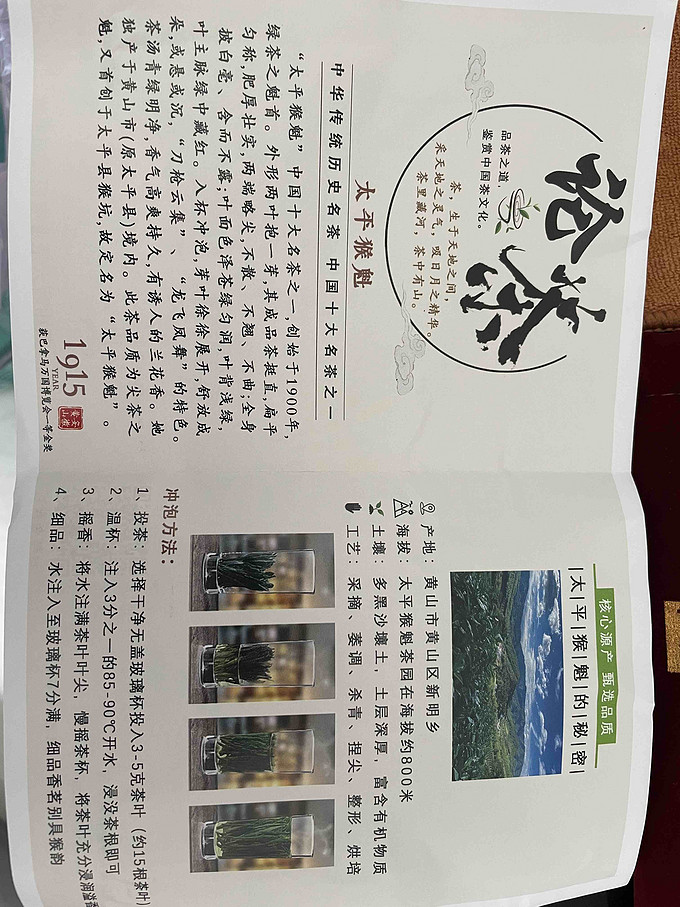 论茶
品茶之道，
鉴赏中国茶文化。
茶，生于天地之间，
采天地之灵气，吸日月之精华。
茶里藏河，茶中有山。
太平猴魁
中华传统历史名茶 中国十大名茶之一
“太平猴魁”中国十大名茶之一，创始于1900年，
绿茶之魁首。外形两叶抱一芽，其成品茶挺直，扁平
匀称，肥厚壮实，两端略尖，不散、不翘、不曲；全身
披白毫、含而不露；叶面色泽苍绿匀润，叶背浅绿，
叶主脉绿中藏红。入杯冲泡，芽叶徐徐展开，舒放成
朵，或悬或沉，“刀枪云集”、“龙飞凤舞”的特色。
茶汤青绿明净，香气高爽持久，有诱人的兰花香。她
独产于黄山市(原太平县)境内。此茶品质为尖茶之
魁，又首创于太平县猴坑，故定名为“太平猴魁”。
1915
YEAR
获巴拿马万国博览会一等金奖
核心源产 甄选品质
|太|平|猴|魁|的|秘|密|
产地：黄山市黄山区新明乡
海拔：太平猴魁茶园在海拔约800米
土壤：多黑沙壤土，土层深厚，富含有机物质
工艺：采摘、萎调、杀青、捏尖、整形、烘培
冲泡方法：
1、投茶：选择干净无盖玻璃杯投入3-5克茶叶（约15根茶叶）
2、温杯：注入3分之一的85-90℃开水，浸没茶根即可
3、摇香：将水注满茶叶叶尖，慢摇茶杯，将茶叶充分浸润溢香
4、细品：水注入至玻璃杯7分满，细品香茗别具猴韵